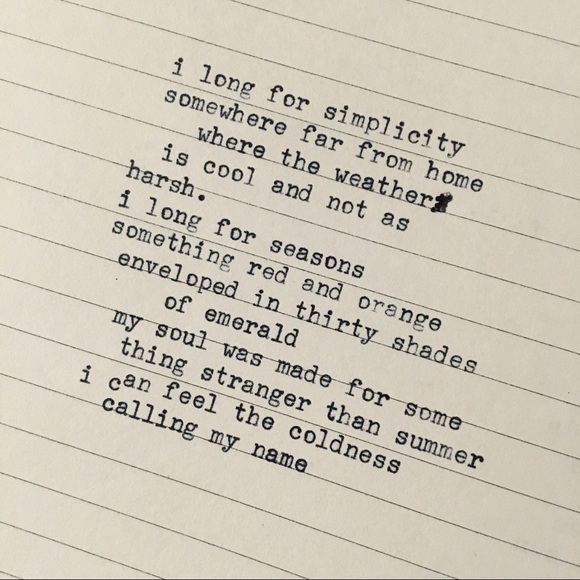 i long for simplicity
somewhere far from home
where the weather
is cool and not as
harsh.
i long for seasons
something red and orange
enveloped in thirty shades
of emerald
my soul was made for some
thing stranger than summer
i can feel the coldness
calling my name